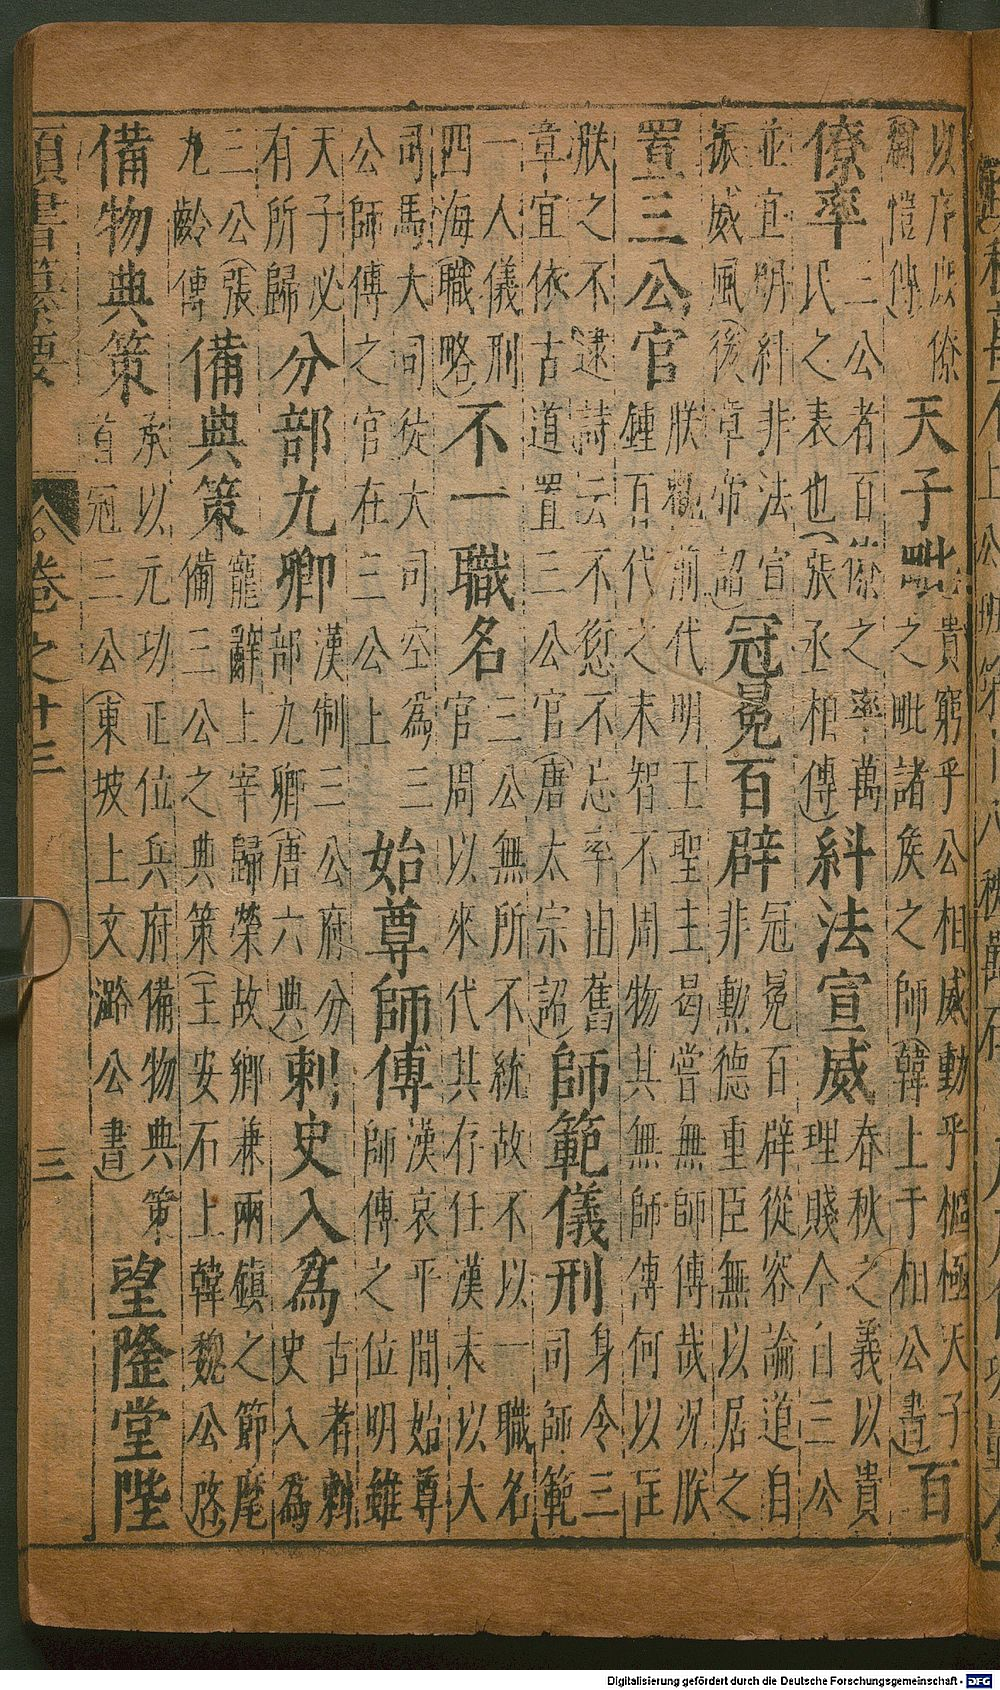 以序庶僚
綱愷傅
天子毗
貴窮乎公相威動乎樞極天子
之毗諸侯之師(韓上于相公書)
百
僚率
三公者百僚之率萬
民之表也(張丞相傳)
糾法宣威
春秋之義以貴
理賤今自三公
並宜明糾非法宣
振威風(後章帝詔)
冠冕百辟
冠冕百辟從容論道自
非勲德重臣無以居之
置三公官
朕觀前代明王聖主曷嘗無師傅哉況朕
鍾百代之末智不周物其無師傅何以匡
朕之不逮詩云不愆不忘率由舊
章宜依古道置三公官(唐太宗詔)
師範儀刑
身令三
司師範
一人儀刑
四海(職略)
不一職名
三公無所不統故不以一職名
官周以來代其存任漢末以大
司馬大司徒大司空為三
公師傅之官在三公上
始尊師傅
漢哀平間始尊
師傅之位明雖
天子必
有所歸
分部九卿
漢制三公府分
部九卿(唐六典)
刺史入為
古者刺
史入為
三公(張
九齡傳
備典策
寵辭上宰歸榮故鄉兼兩鎮之節麾
備三公之典策(王安石上韓魏公啓)
備物典策
承以元功正位兵府備物典策
首冠三公(東坡上文潞公書)
望隆堂陛
類書纂要
卷之十三
三
Digitalisierung gefördert durch die Deutsche Forschungsgemeinschaft - DFG